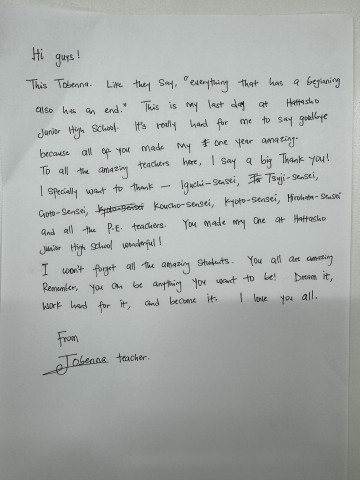 Hi guys!
This Tobenna. Like they say, "everything that has a beginning
also has an end." This is my last day at Hattasho
Junior High School. It's really hard for me to say goodbye
because all of you made my one year amazing.
To all the amazing teachers here, I say a big Thank you!
I specially want to thank — Iguchi-Sensei, Tsuji-sensei,
Goto-Sensei, Kyoto-Sensei Koucho-sensei, Kyoto-sensei, Hirohata-Sensei
and all the P.E. teachers. You made my one at Hattasho
Junior High School wonderful!
I won't forget all the amazing students. You all are amazing
Remember, you can be anything you want to be! Dream it,
work hard for it, and become it. I love you all.
From
Tobenna teacher.